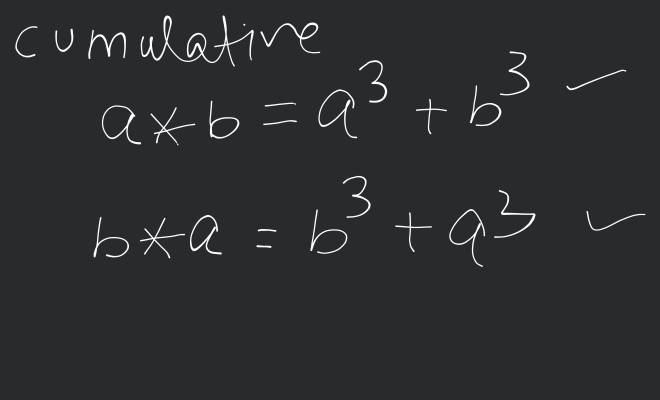 cumulative
a*b = a³ + b³ ✓
b*a = b³ + a³ ✓